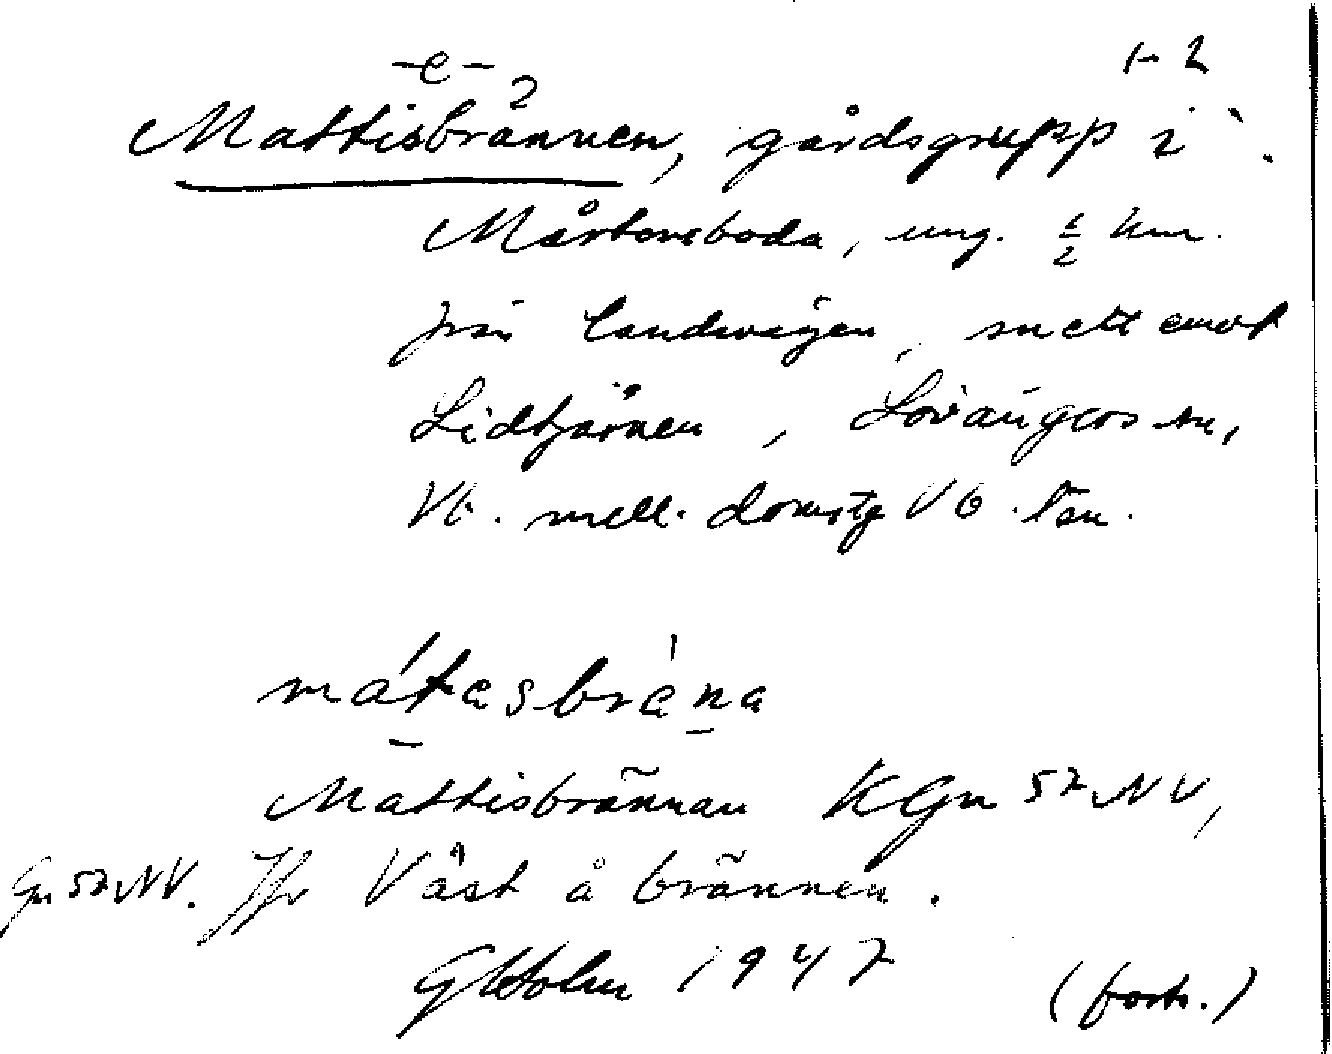 -e- 2 1-2
Mattisbrännen, gårdsgrupp i
Mårtensboda, ung. 1/2 km.
från landsvägen, mett emot
Lidtjärnen, Lövångers sn,
Vb. mell. domstg Vb. län.
mátasbrèna
Mattisbrännan KGn 52 NV,
Gn 52 NV. Jfr Väst å brännen.
GHolm 1947 (forts.)